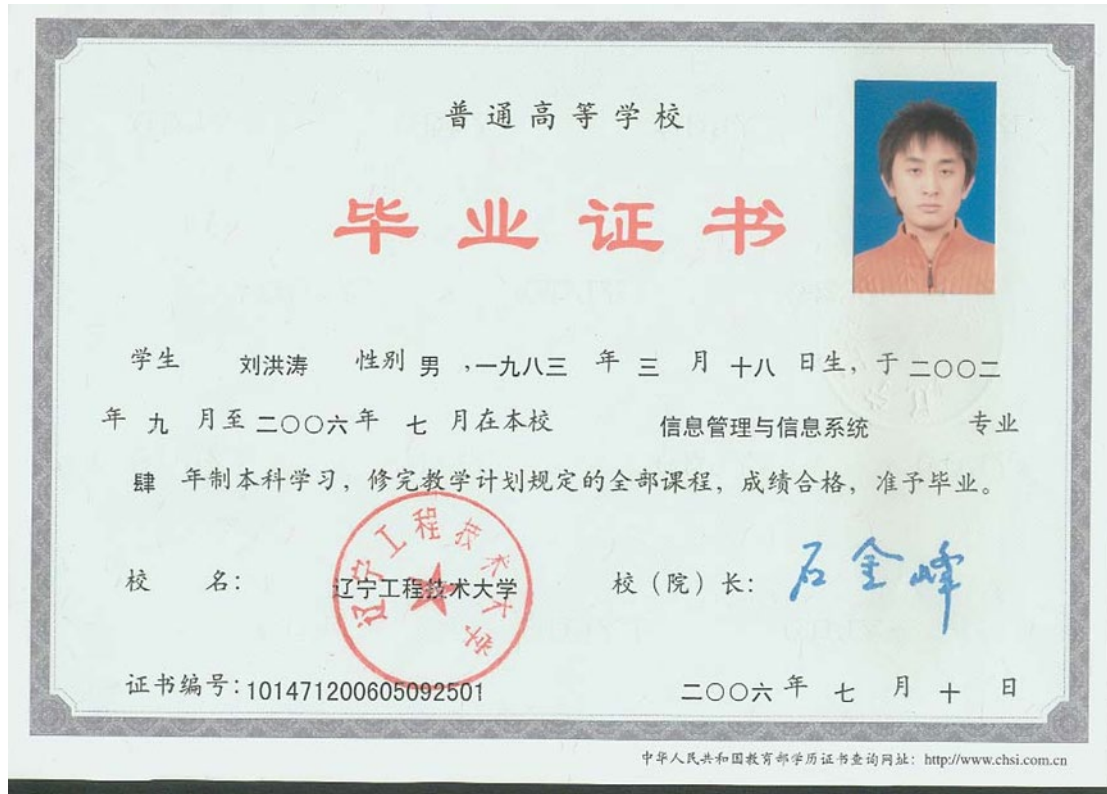 普通高等学校
毕业证书
学生 刘洪涛 性别 男 ,一九八三 年 三 月 十八 日生, 于 二〇〇二
年 九 月至 二〇〇六 年 七 月在本校 信息管理与信息系统 专业
肆 年制本科学习, 修完教学计划规定的全部课程, 成绩合格, 准予毕业。
辽宁工程技术大学
校 名: 辽宁工程技术大学 校（院）长: 石金峰
证书编号: 101471200605092501 二〇〇六 年 七 月 十 日
中华人民共和国教育部学历证书查询网址: http://www.chsi.com.cn